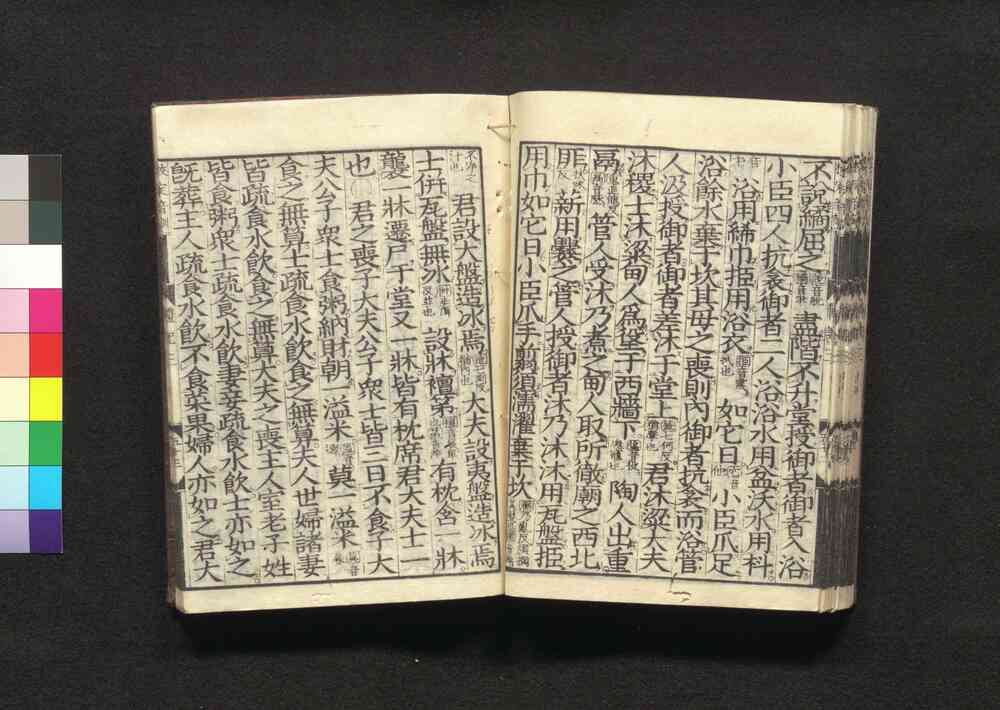 不說繘屈之 盡階不升堂授御者御者入浴
小臣四人抗衾御者二人浴浴水用盆沃水用枓
浴用絺巾挋用浴衣 如它日 小臣爪足
浴餘水棄于坎其母之喪則內御者抗衾而浴管
人汲授御者御者差沐于堂上 君沐粱大夫
沐稷士沐粱甸人為垼于西牆下 陶人出重
鬲 管人受沐乃煮之甸人取所徹廟之西北
厞 薪用爨之管人授御者沐乃沐沐用瓦盤挋
用巾如它日小臣爪手翦須濡濯棄于坎
君設大盤造冰焉 大夫設夷盤造冰焉
士併瓦盤無冰 設牀襢笫 有枕含一牀
襲一牀遷尸于堂又一牀皆有枕席君大夫士一
也 君之喪子大夫公子衆士皆三日不食子大
夫公子衆士食粥納財朝一溢米 莫一溢米
食之無算士疏食水飲食之無算夫人世婦諸妻
皆疏食水飲食之無算大夫之喪主人室老子姓
皆食粥衆士疏食水飲妻妾疏食水飲士亦如之
旣葬主人疏食水飲不食菜果婦人亦如之君大